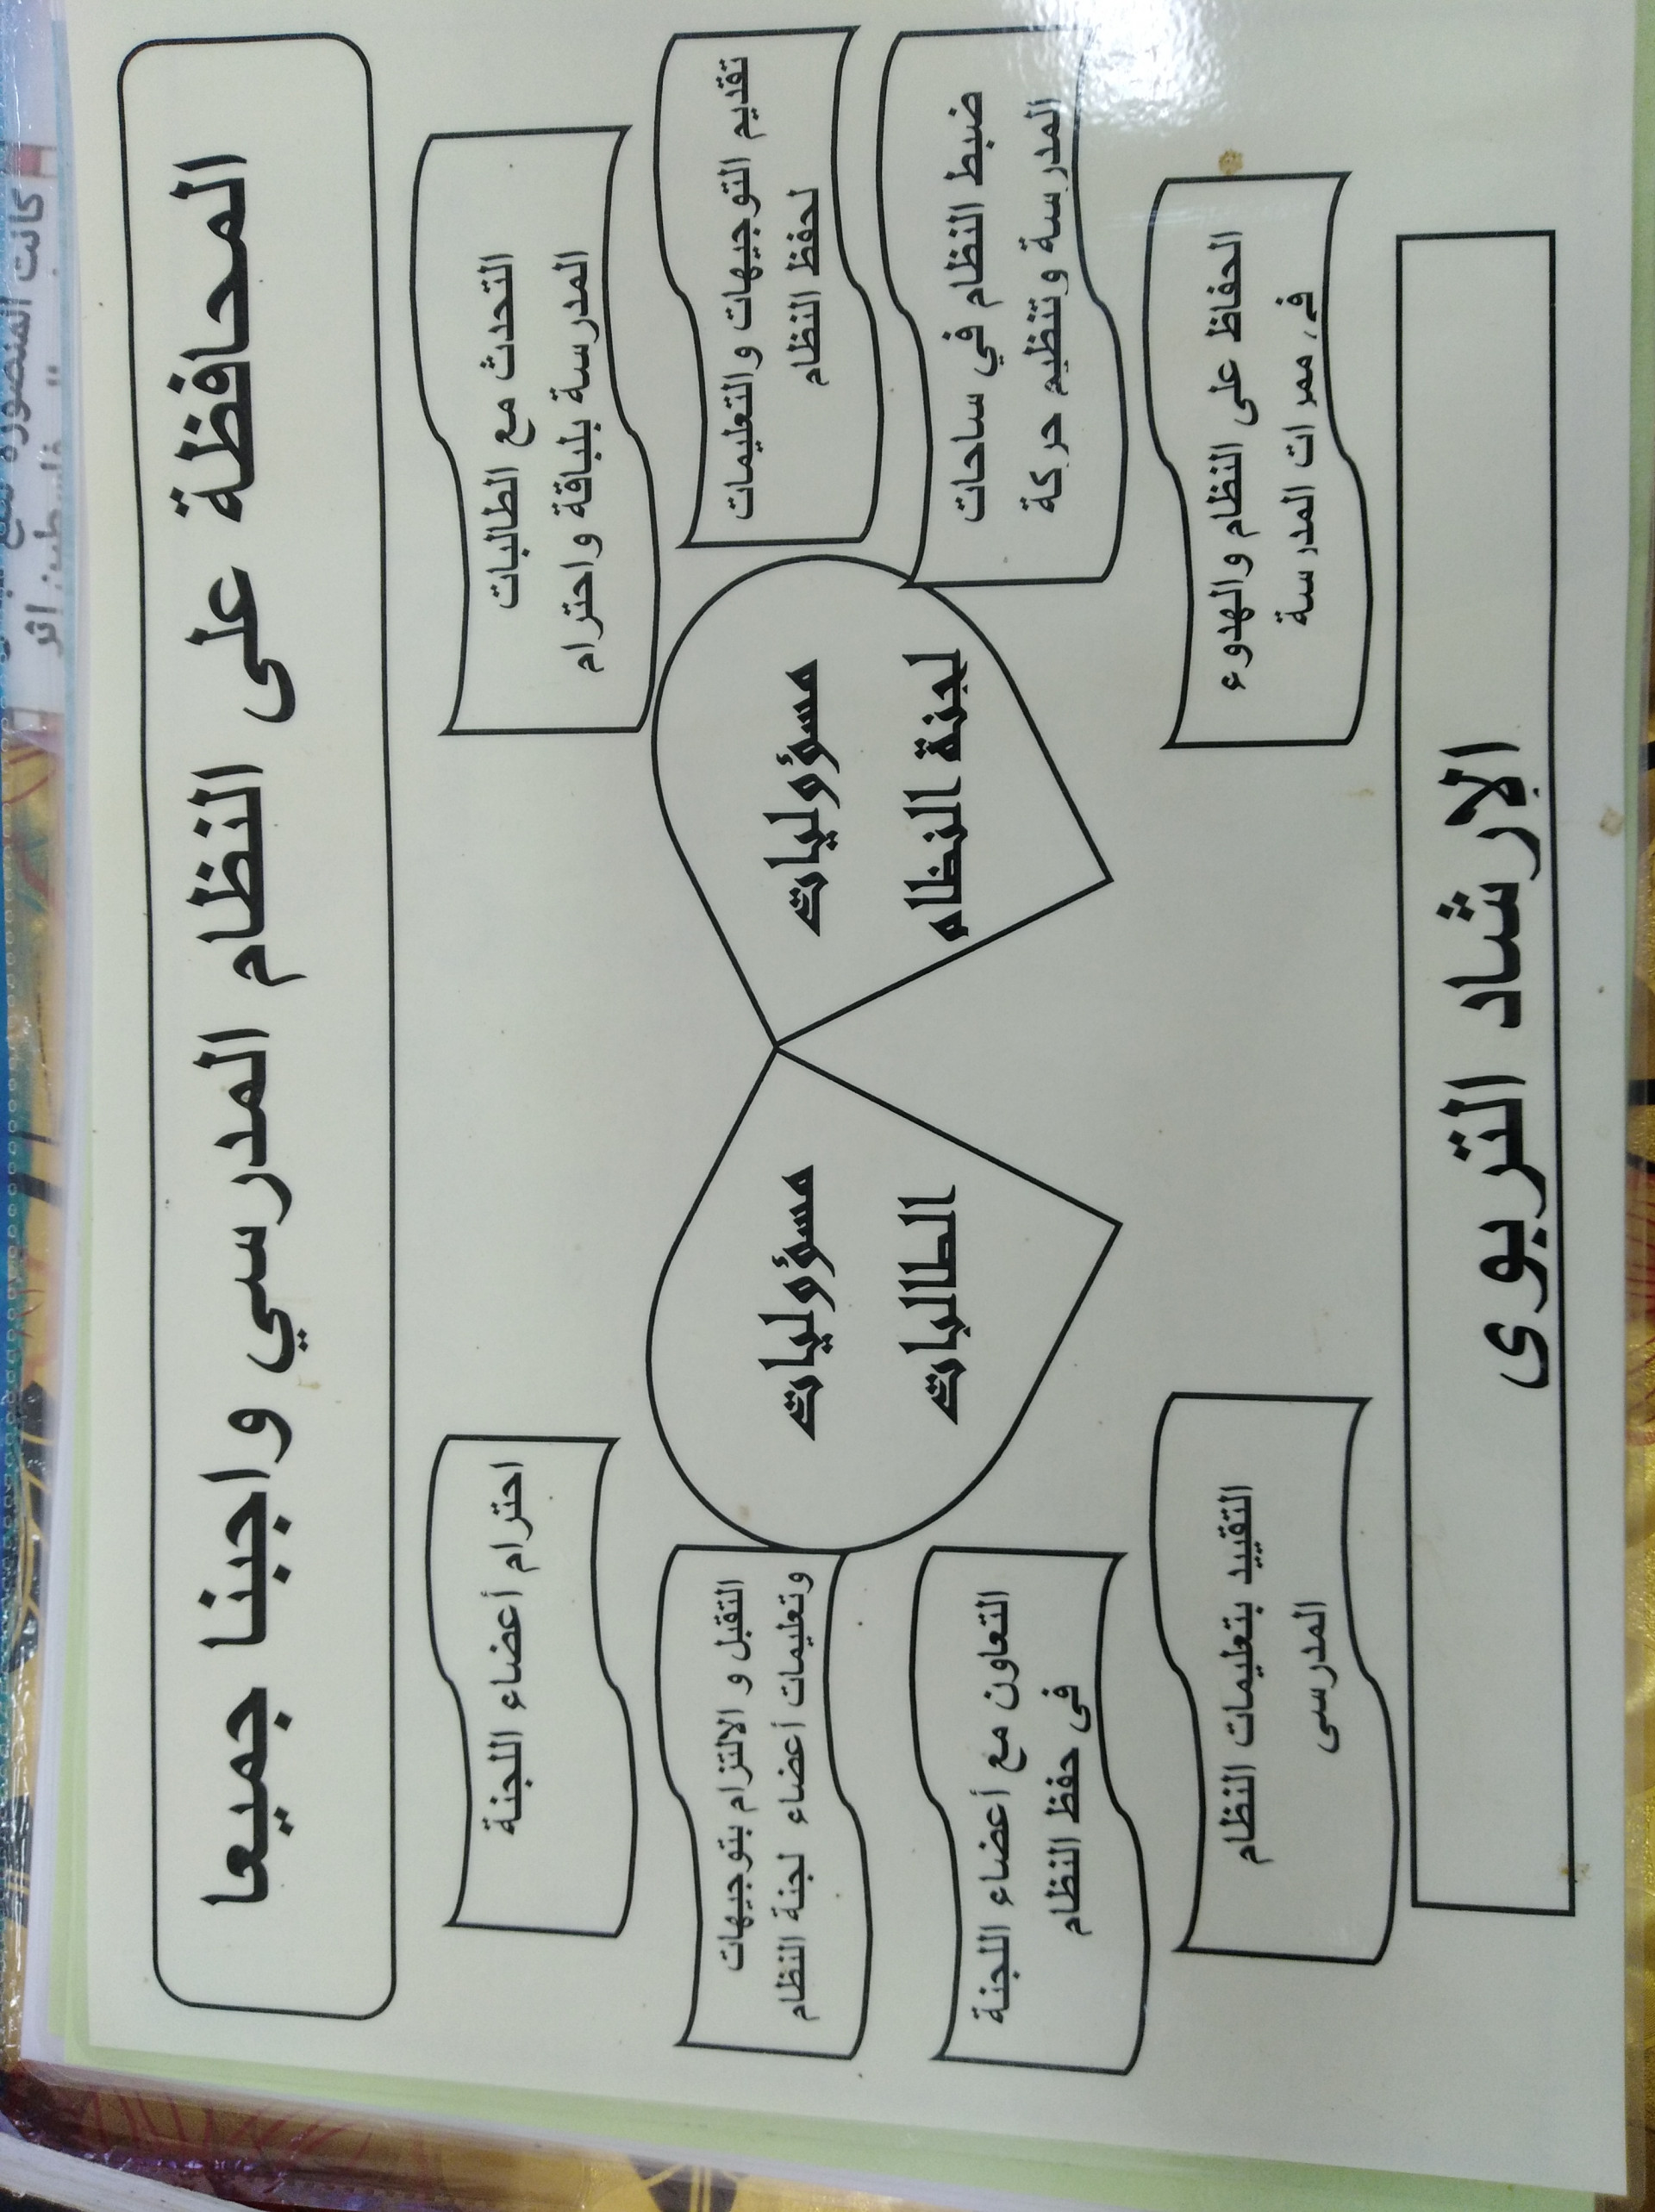 المحافظة على النظام المدرسي واجبنا جميعا
التحدث مع الطالبات
المدرسة بلباقة واحترام
تقديم التوجيهات والتعليمات
لحفظ النظام
ضبط النظام في ساحات
المدرسة وتنظيم حركة
الحفاظ على النظام والهدوء
في ممرات المدرسة
مسؤوليات
لجنة النظام
مسؤوليات
الطالبات
احترام أعضاء اللجنة
التقبل و الالتزام بتوجيهات
وتعليمات أعضاء لجنة النظام
التعاون مع أعضاء اللجنة
في حفظ النظام
التقييد بتعليمات النظام
المدرسي
الإرشاد التربوي
كانت المنصورة